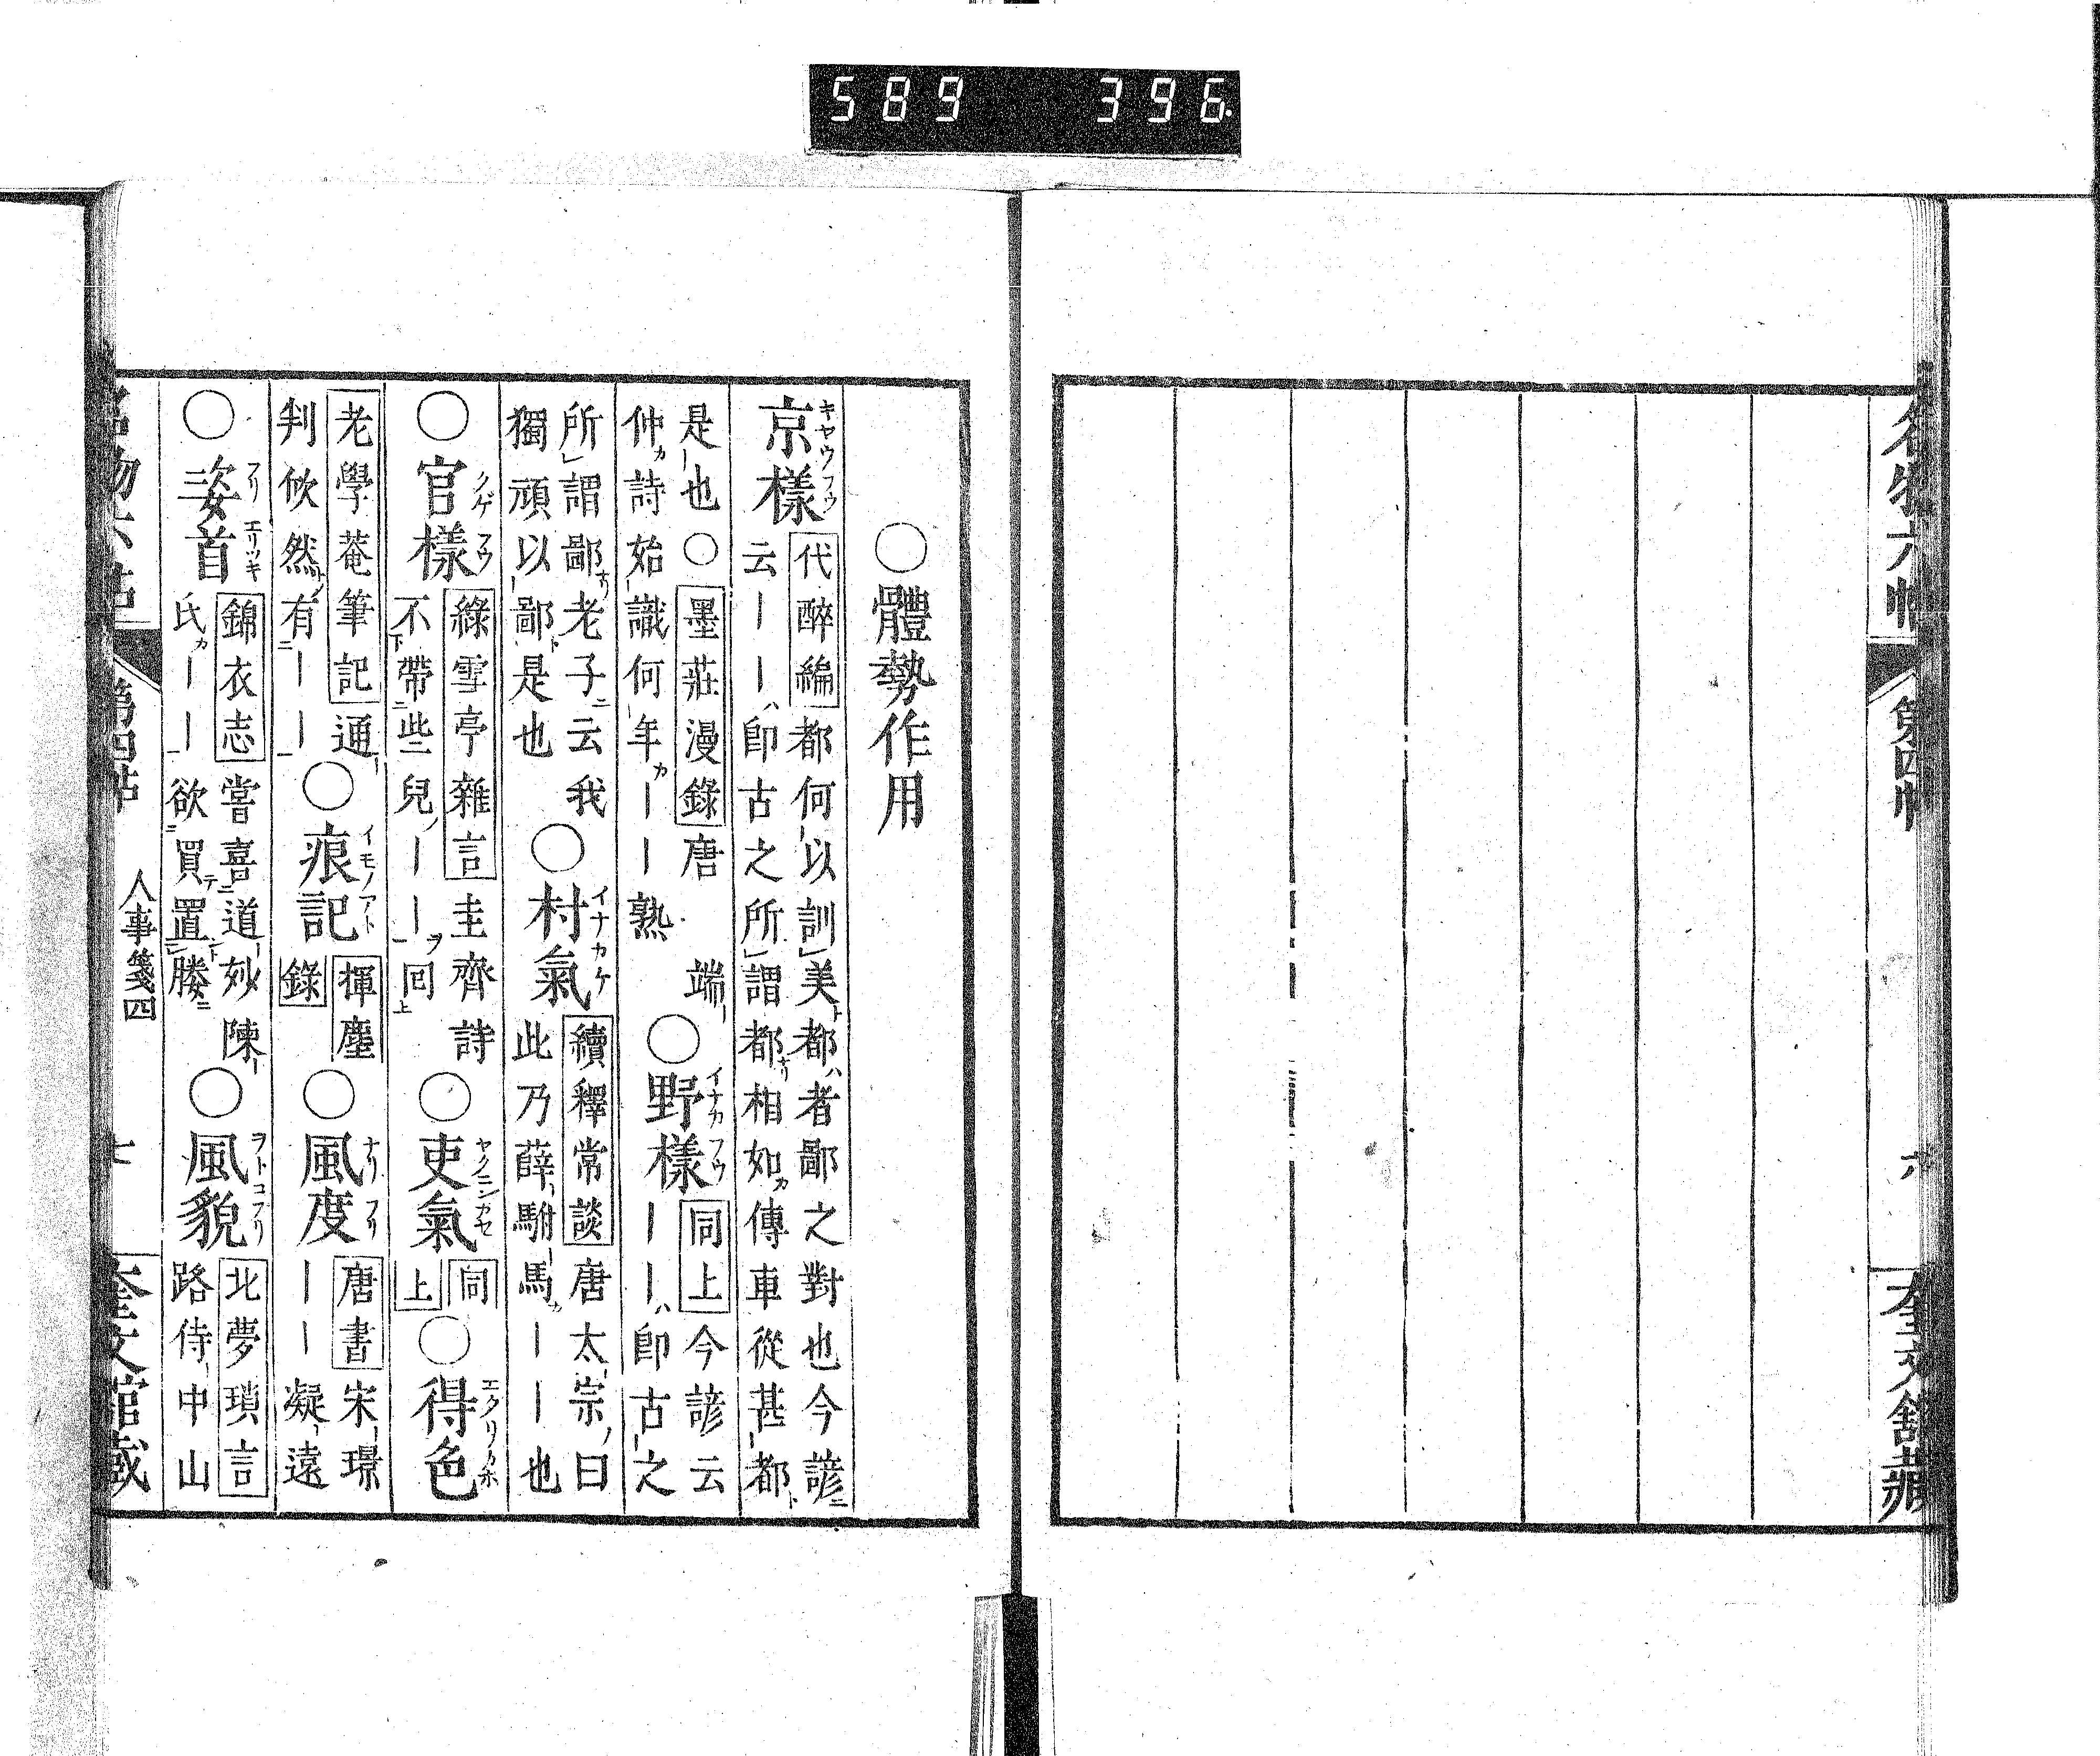 589 396
名物六帖 第四帖 六 奎文館藏
○體勢作用
京樣 キヤウフウ 代醉編 都何以訓美都者鄙之對也今諺
云――ハ即古之所謂都相如傳車從甚都
是也○墨莊漫錄唐 端
仲詩始識何年――熟
○野樣 イナカフウ 同上 今諺云
――ハ即古之
所謂鄙老子云我
獨頑以鄙是也
○村氣 イナカケ 續釋常談 唐太宗曰
此乃薛駙馬――也
○官樣 クゲフウ 綠雪亭雜言 圭齊詩
不帶些兒――回
○吏氣 ヤクニンカセ 同上
○得色 エタリカホ
老學菴筆記 通
判攸然有――
○痕記 イモノアト 揮塵錄
○風度 ナリフリ 唐書 宋璟
――凝遠
○姿首 フリエリツキ 錦衣志 嘗喜道妙 陳
氏――欲買置媵
○風貌 ヲトコフリ 北夢瑣言
路侍中山
名物六帖 第四帖 人事箋四 七 奎文館藏